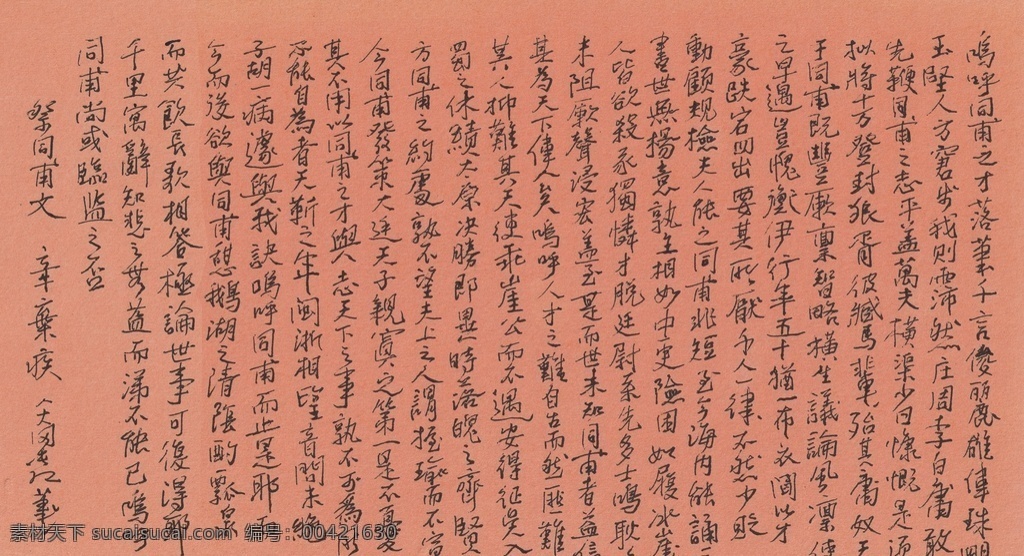 嗚呼同甫之才落筆千言俊麗雄偉珠明
玉堅人方窘步我則沛然莊周李白庸敢
先鞭同甫之志平蓋萬夫橫渠少日慷慨是須
擬將十萬登封狼胥彼臧馬輩殆其庸奴天
于同甫既豐厥稟智略橫生議論風凜使
之早遇豈愧衡伊行年五十猶一布衣間以才
豪跌宕四出要其所厭千人一律不然少貶
動顧規檢夫人能之同甫非短至今海内能誦三
書世無楊意孰主相如中更險困如履冰崖
人皆欲殺我獨憐才脫廷尉系先多士鳴耿
未阻厥聲浸宏蓋至是而世未知同甫者益信
其為天下偉人矣嗚呼人才之難自古而然匪難
其人抑難其天使乖崖公而不遇安得征吳入
蜀之休績太原決勝即異時落魄之齊賢
方同甫之約處孰不望夫上之人謂握瑜而不宣
今同甫發策大廷天子親寘之第一是不憂
其不用以同甫之才與志天下之事孰不可為所
不能自為者天靳之年閩浙相望音問未絕
子胡一病遽與我訣嗚呼同甫而止是耶
今而後欲與同甫憩鵝湖之清陰酌瓢泉
而共飲長歌相答極論世事可復得耶
千里寓辭知悲之無益而涕不能已嗚呼
同甫尚或臨監之否
祭同甫文 辛棄疾
素材天下 sucaisucai.com 编号：00421630